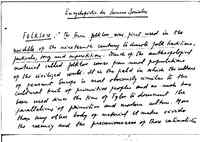 Encyclopedia der Sciences Sociales
FOLKLORE. The term folklore was first used in the
middle of the nineteenth century to denote folk traditions,
particular, song and superstitions. Much of the anthropological
material called folklore comes from rural populations
of the civilized world. It is the field in which the culture
of peasant Europe is most obviously similar to the
cultural trait of primitive peoples and as such has
been used since the time of Tylor to document the
parallelism of primitive and modern culture. More
than any other body of material it makes vivid
the recency and the precariousness of those rationalistic